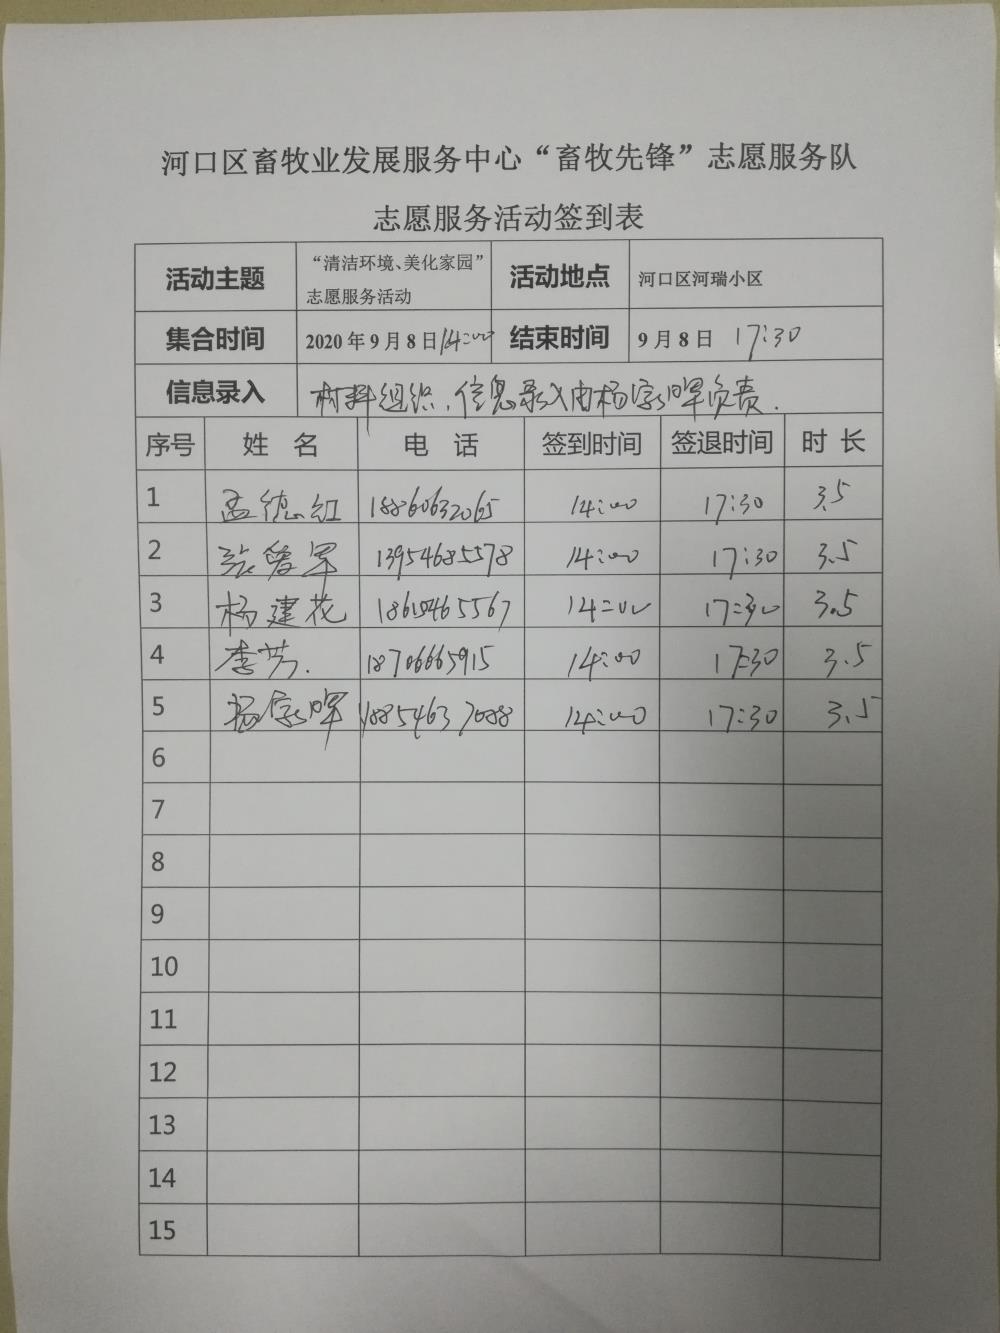 河口区畜牧业发展服务中心“畜牧先锋”志愿服务队
志愿服务活动签到表
活动主题 “清洁环境、美化家园” 志愿服务活动 活动地点 河口区河瑞小区
集合时间 2020年9月8日14:00 结束时间 9月8日 17:30
信息录入 材料组织、信息录入由杨家晖负责.
序号 姓 名 电 话 签到时间 签退时间 时 长
1 孟德红 14:00 17:30 3.5
2 张爱军 13954685578 14:00 17:30 3.5
3 杨建花 14:00 17:30 3.5
4 李芳. 18706665915 14:00 17:30 3.5
5 杨家晖 18854637088 14:00 17:30 3.5
6
7
8
9
10
11
12
13
14
15